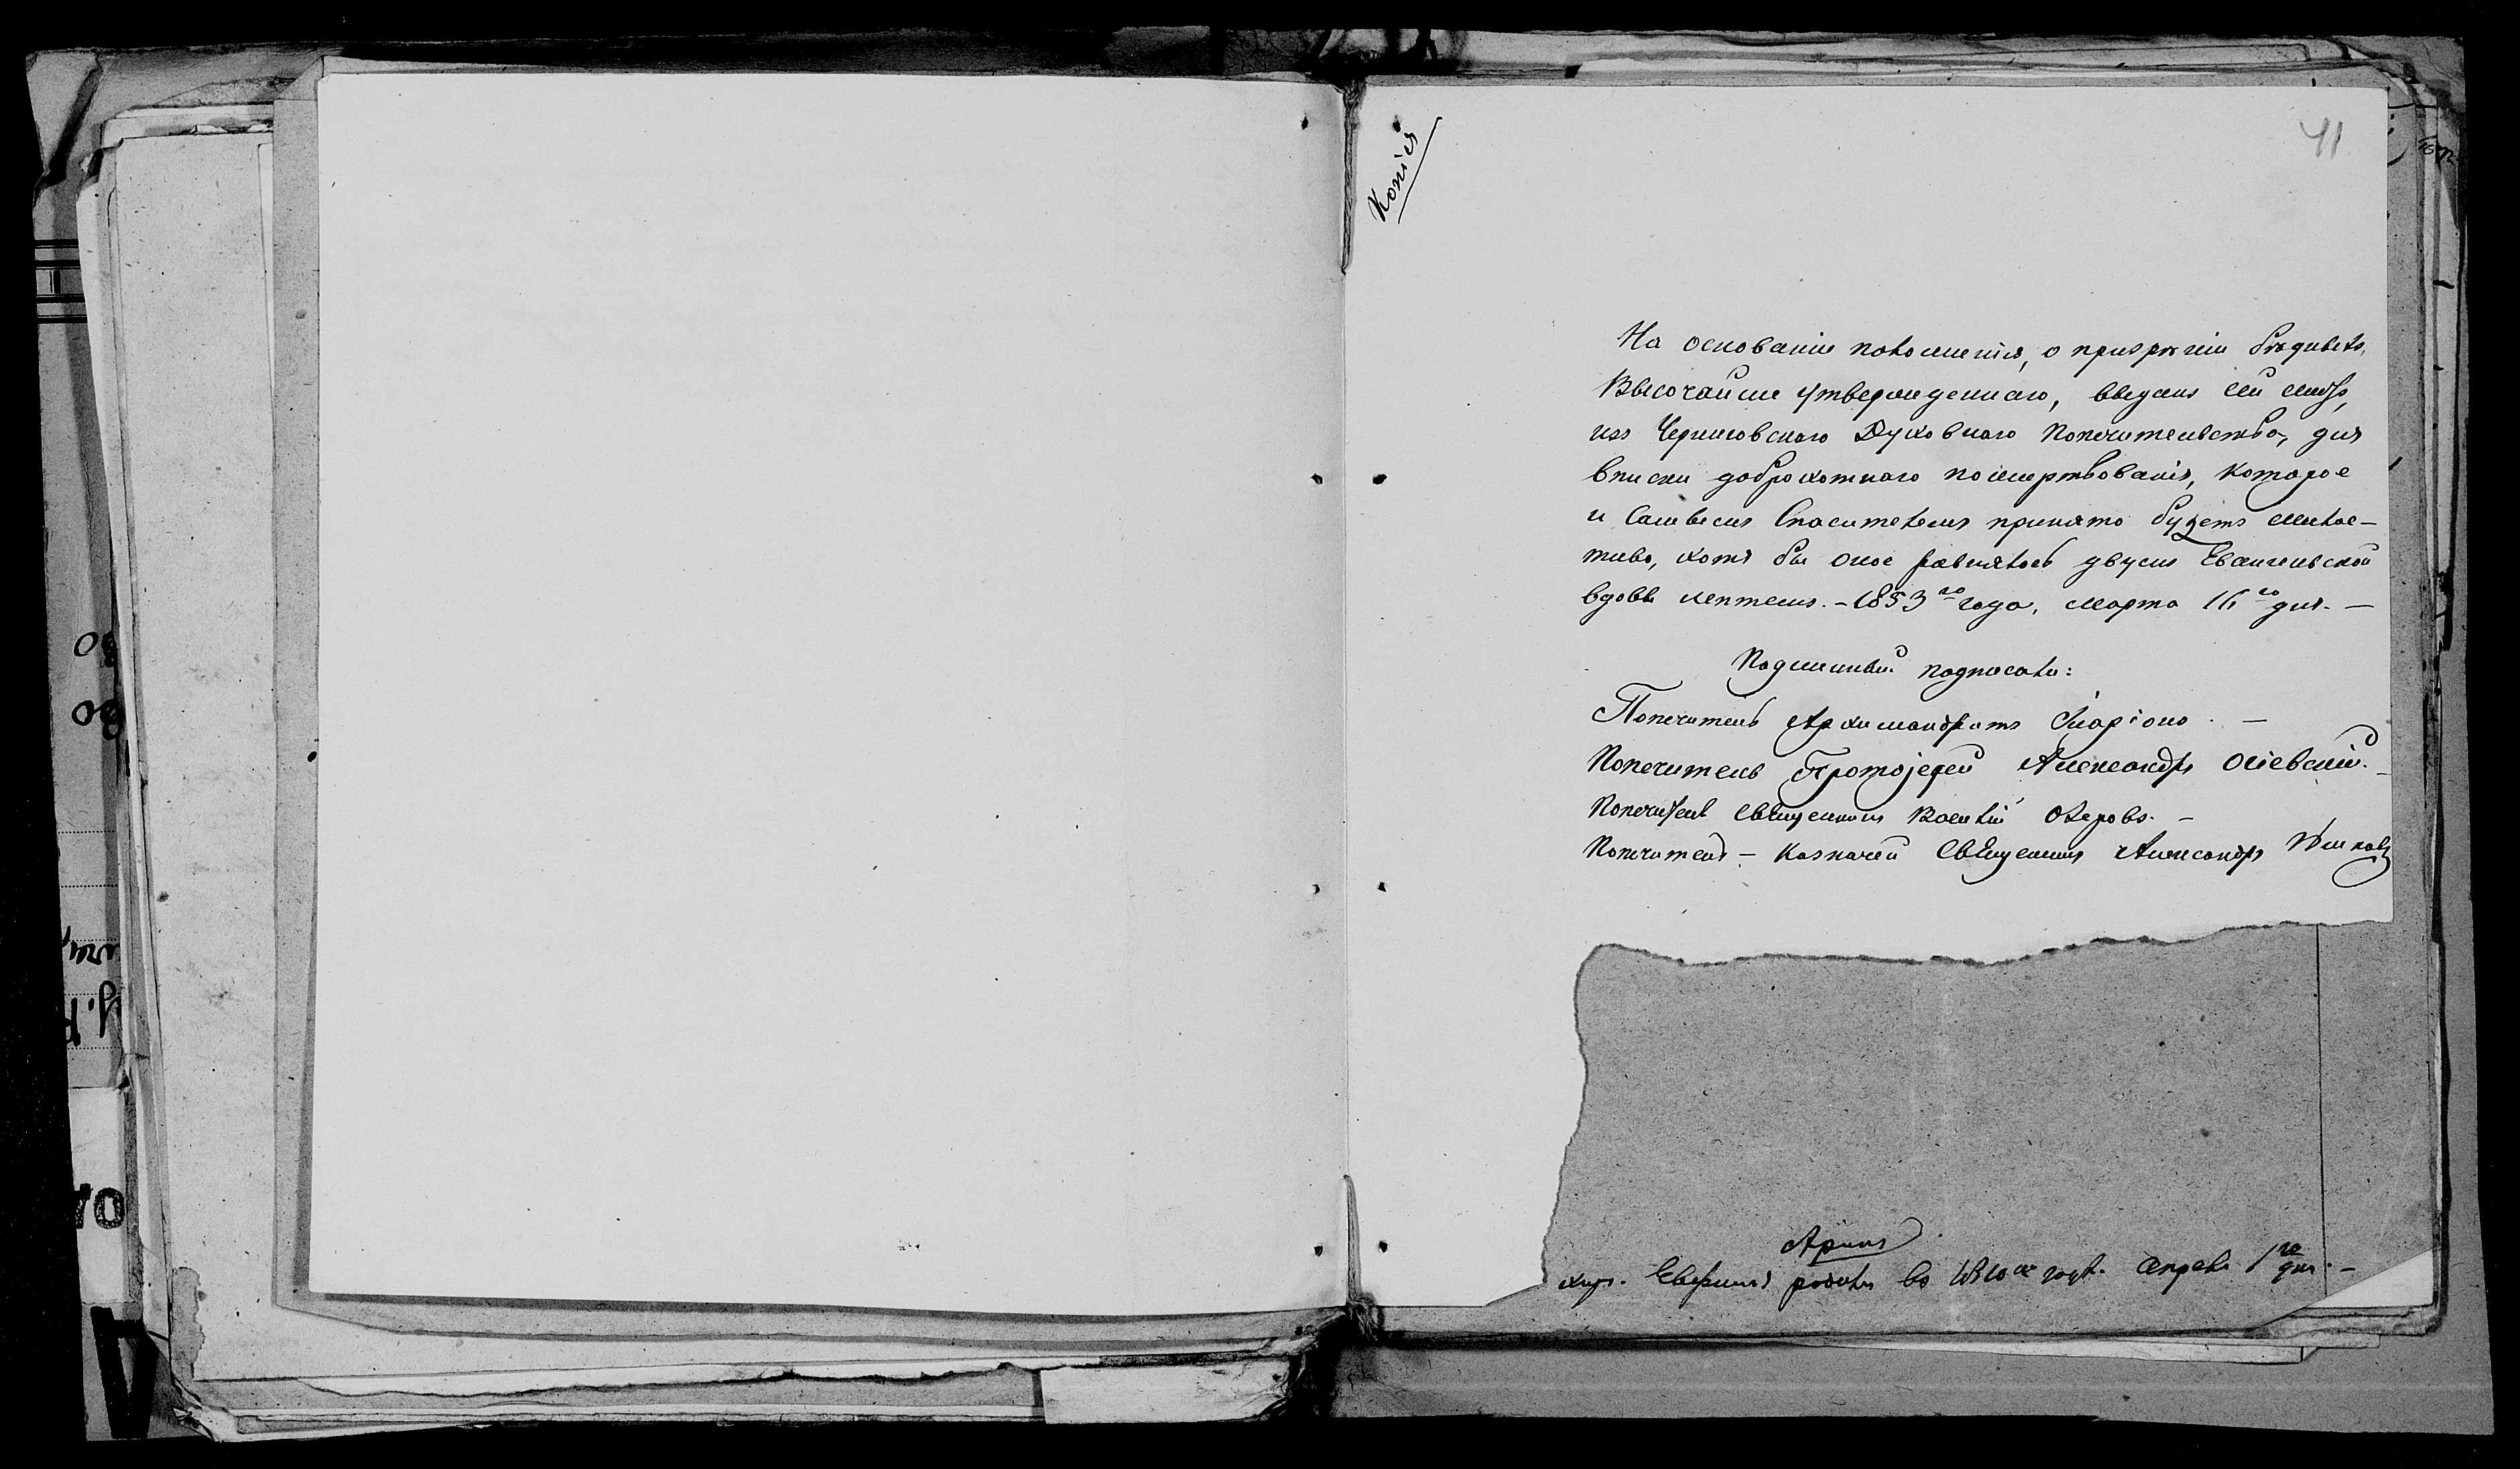 Копія
41
На основаніи положенія, о призрѣніи бѣдныхъ,
Высочайше утвержденнаго, введена сія
изъ Черниговскаго Духовнаго Попечительства, для
вписки доброхотнаго пожертвованія, которое
и Самимъ Спасителемъ принято будетъ милос-
тиво, хотя бы оное равнялось двумъ Евангельской
вдовы лептамъ. – 1853го года, марта 16го дня. –
Подлинный подписали:
Попечитель Архимандритъ Иларіонъ. –
Попечитель Протоіерей Александръ
Попечитель Священникъ Озеровъ. –
Попечитель – Казначей Священникъ Александръ
Арина
родилъ въ годѣ. Апрѣля 1го дня. –